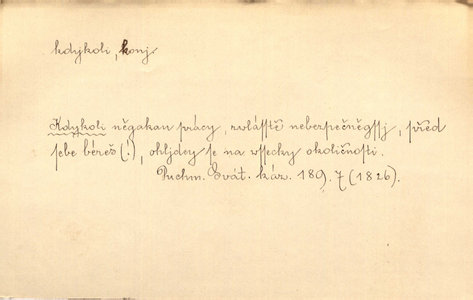 kdykoli, konj.
Kdykoli něgakau prácy, zvlásstě neberpečněgssj, před
sebe béreš (!), ohljdey se na wssecky okoličnosti.
Puchm. Svát. káz. 189. 7 (1826).